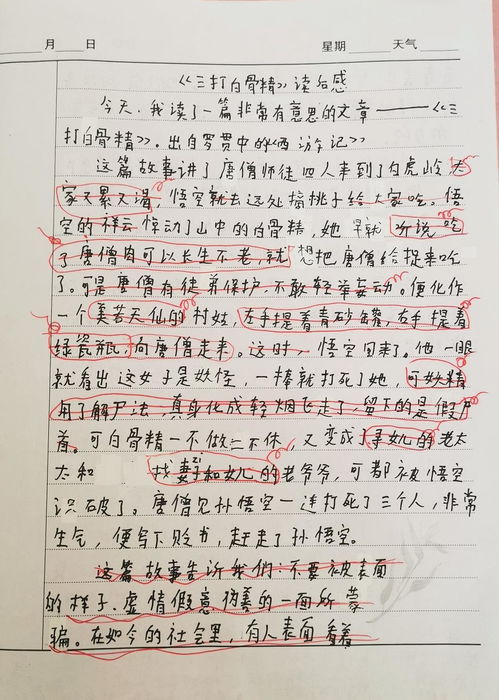 月 日 星期 天气
《三打白骨精》读后感
今天，我读了一篇非常有意思的文章——《三
打白骨精》。出自罗贯中的《西游记》
这篇故事讲了唐僧师徒四人来到了白虎岭，大
家又累又渴，悟空就去远处摘桃子给大家吃。悟
空的祥云惊动了山中的白骨精，她早就听说吃
了唐僧肉可以长生不老，就想把唐僧给捉来吃
了。可是唐僧有徒弟保护，不敢轻举妄动。便化作
一个美若天仙的村姑，左手提着青砂罐，右手提着
绿瓷瓶，向唐僧走来。这时，悟空回来了。他一眼
就看出这女子是妖怪，一棒就打死了她，可妖精
用了解尸法，真身化成轻烟飞走了，留下的是假尸
首。可白骨精一不做二不休，又变成了寻女儿的老太
太和 找妻子和女儿的老爷爷，可都被悟空
识破了。唐僧见孙悟空一连打死了三个人，非常
生气，便写下贬书，赶走了孙悟空。
这篇故事告诉我们：不要被表面
的样子、虚情假意、伪善的一面所蒙
骗。在如今的社会里，有人表面看着